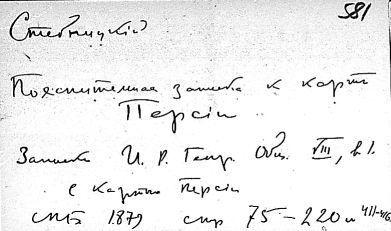 581
Стебницкій
Пояснительная записка к карте
Персіи
Записки И. Р. Геогр. Общ. VIII, в. 1.
с картою Персіи
СПБ 1879 стр 75–220 и